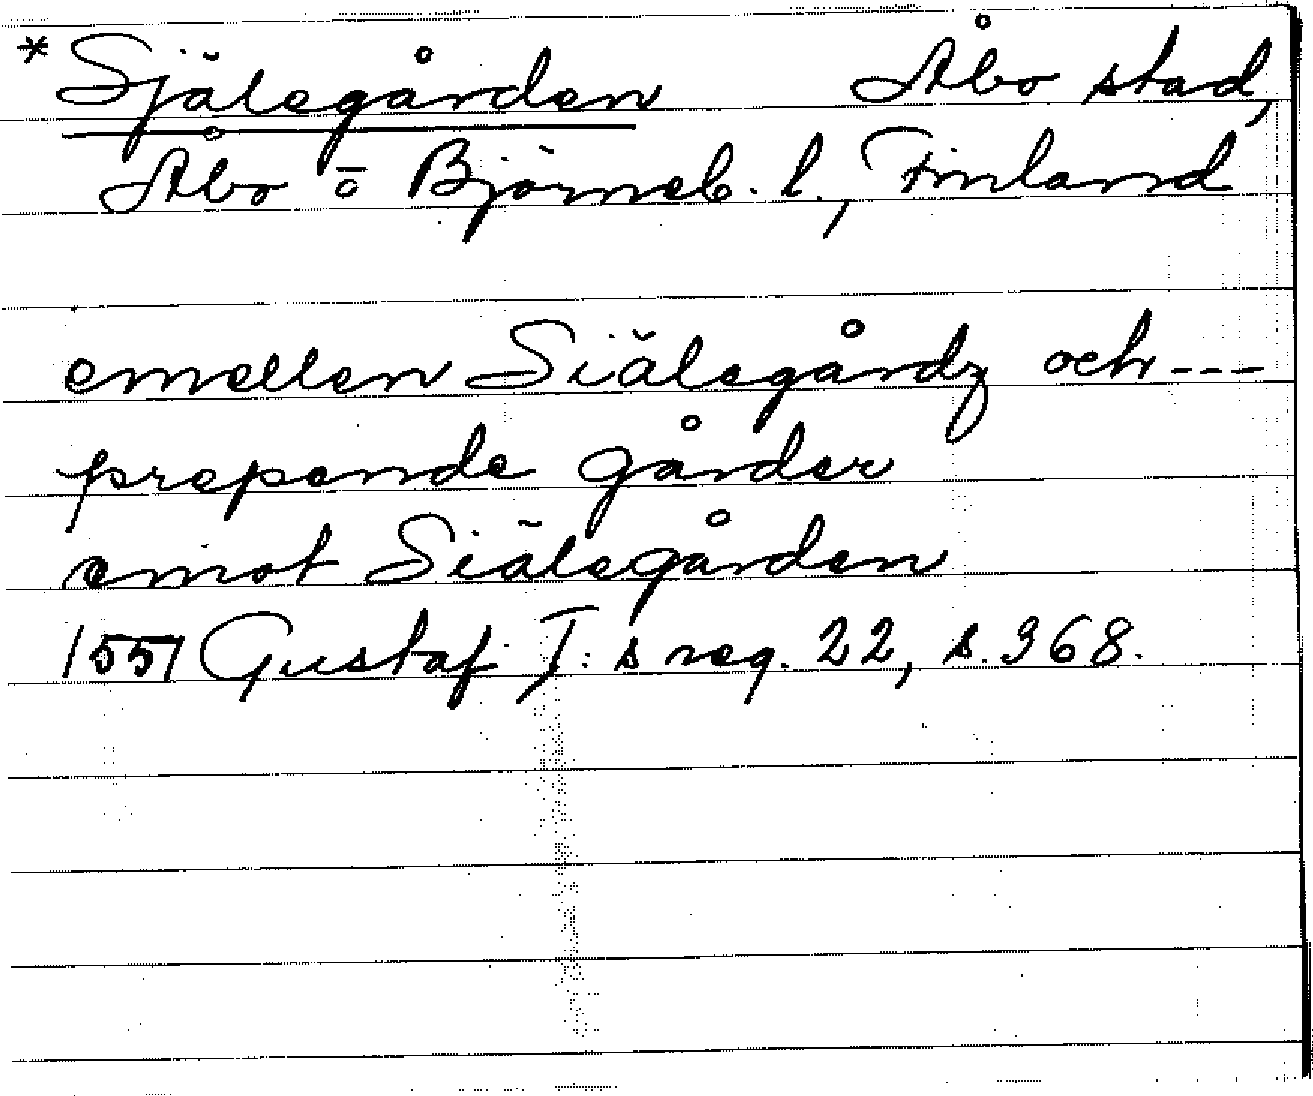 * Själegården Åbo stad,
Åbo ō Björneb. l., Finland
emellen Siälegårdz och ---
prepende gårder
emot Siälegården
1551 Gustaf I: s reg. 22, s. 368.